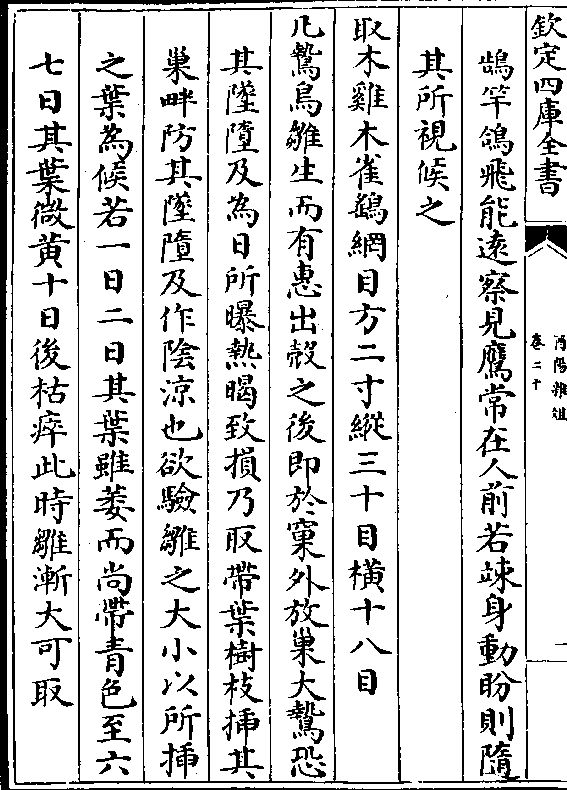 欽定四庫全書
酉陽雜俎
卷二十
一
鵠竿鴿飛能遠察見鷹常在人前若竦身動盼則隨
其所視候之
取木雞木雀鷂網目方二寸縱三十目橫十八目
凡鷙鳥雛生而有惠出殻之後即於窠外放巢大鷙恐
其墜墮及為日所曝熱暍致損乃取帶葉樹枝揷其
巢畔防其墜墮及作陰涼也欲驗雛之大小以所揷
之葉為候若一日二日其葉雖萎而尚帶青色至六
七日其葉微黄十日後枯瘁此時雛漸大可取